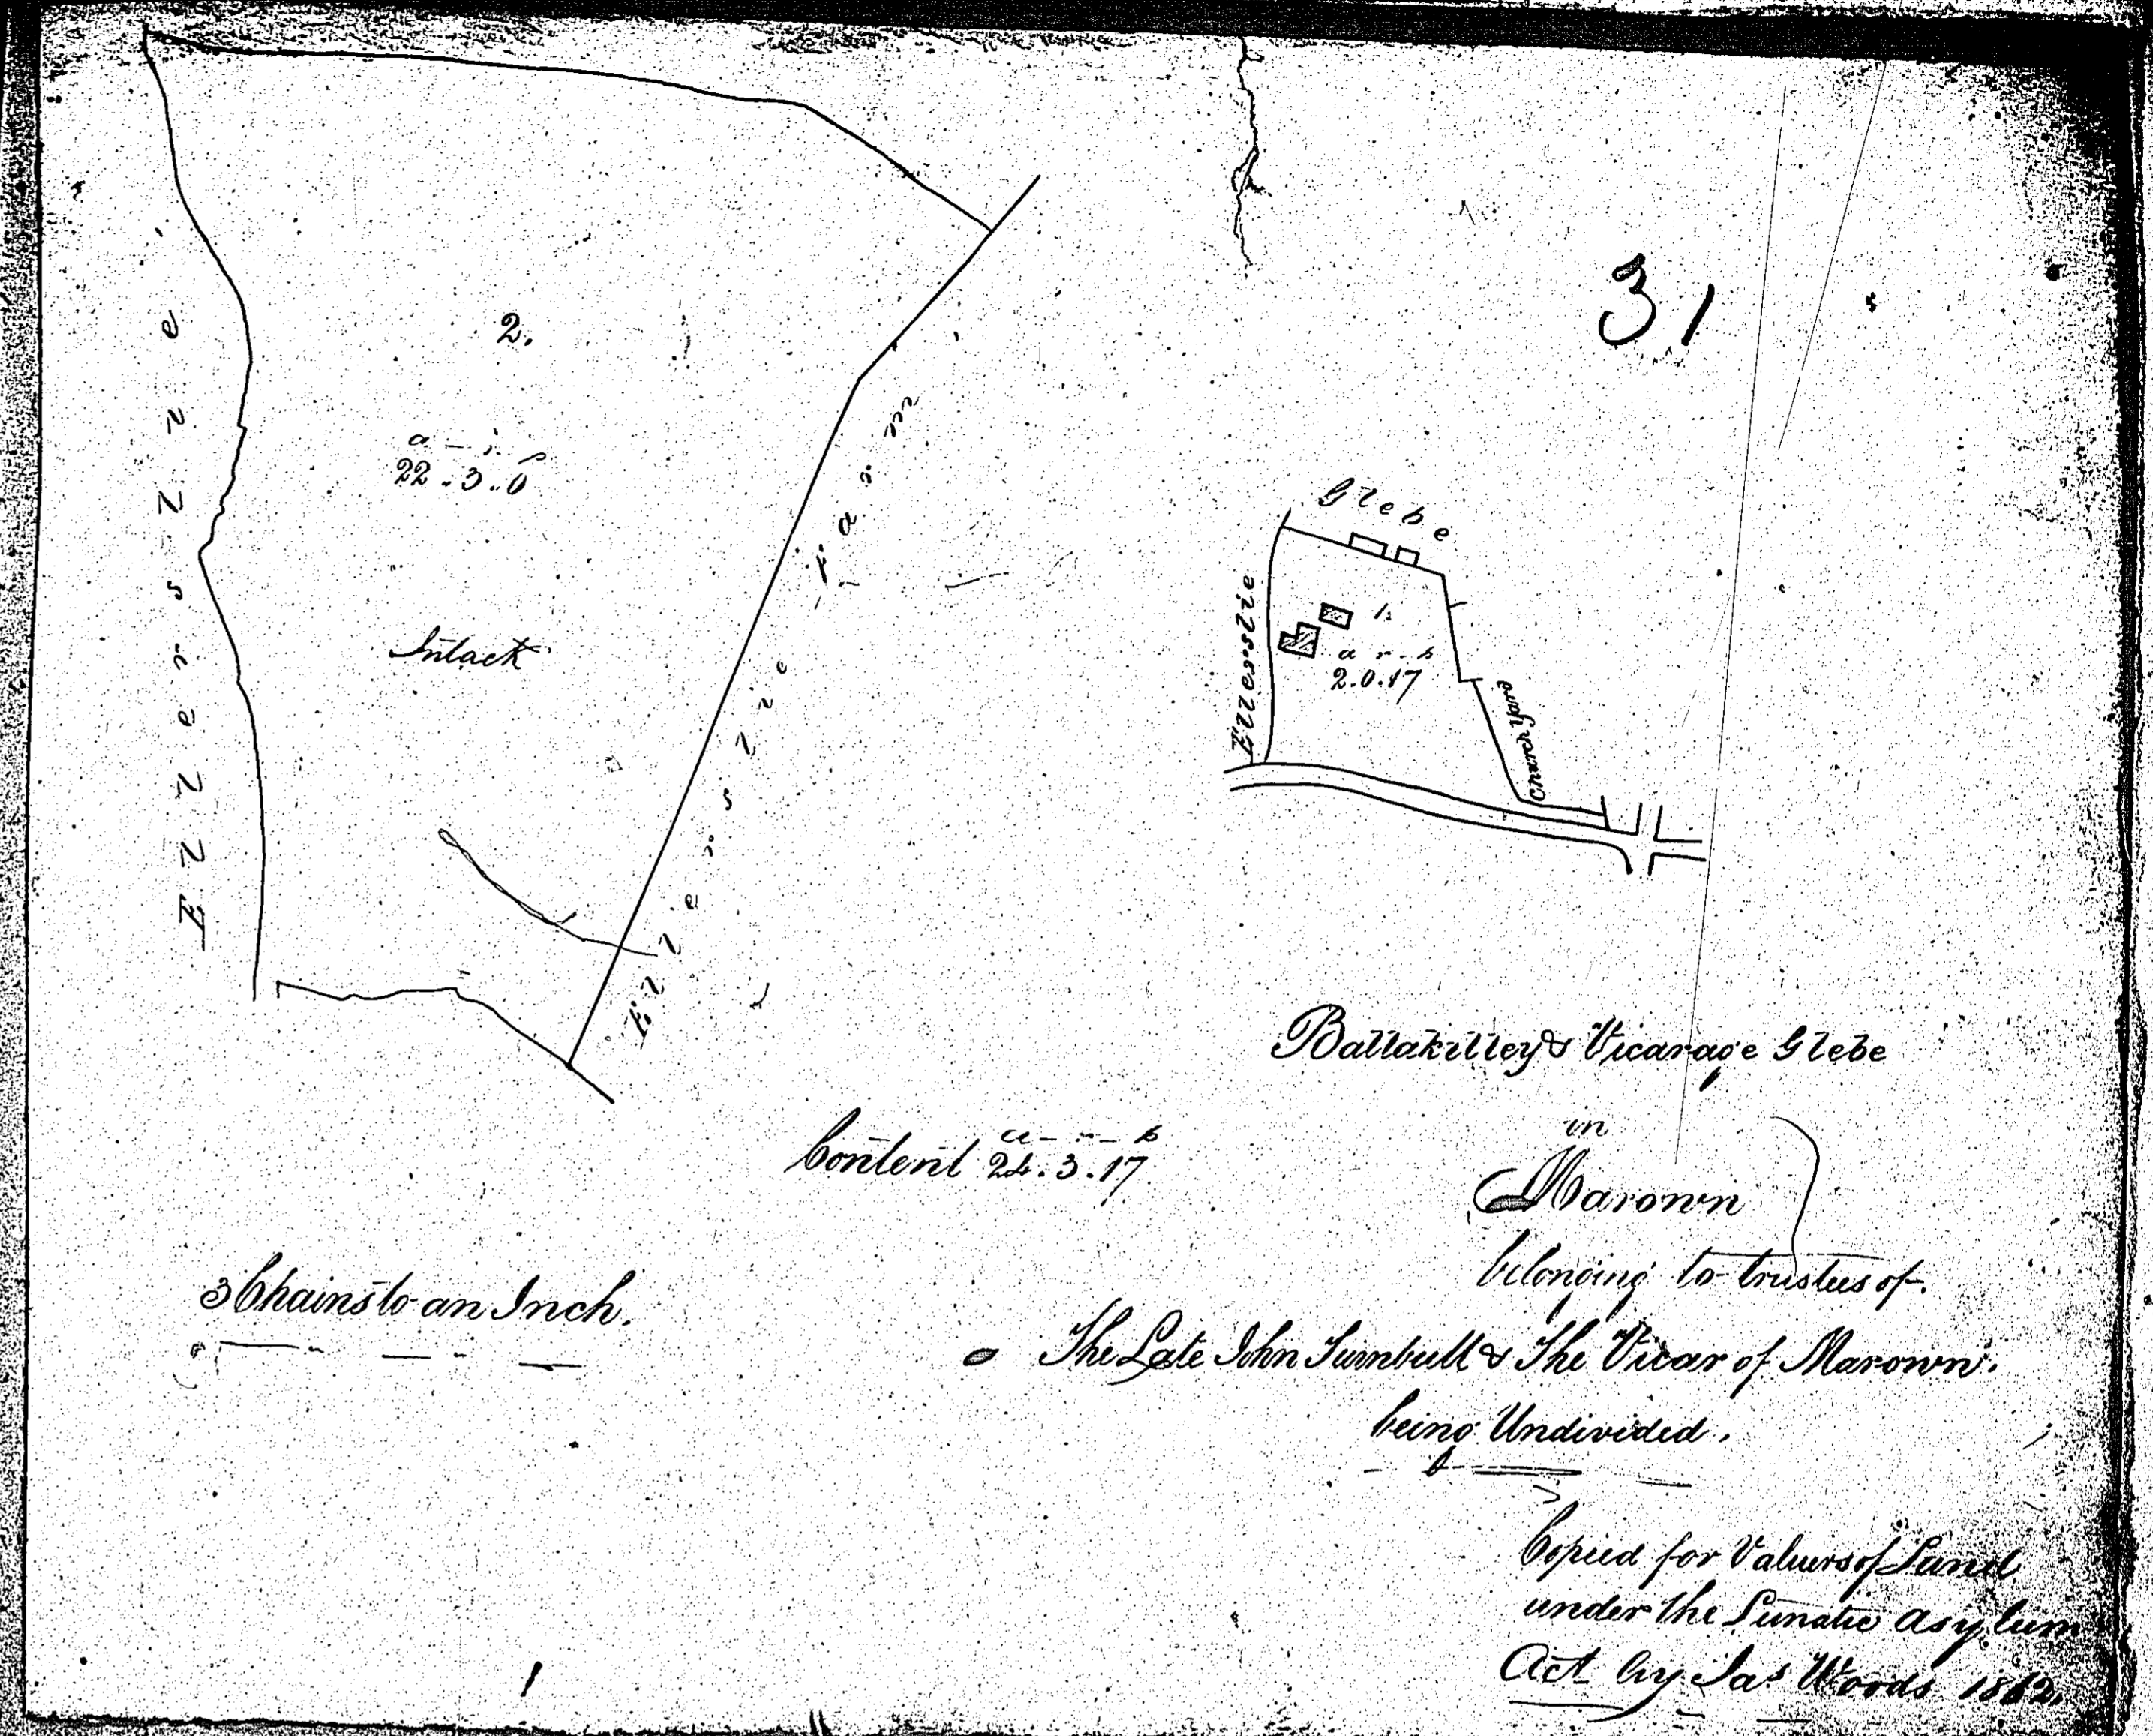 31
2.
a - r. p
22..3..0
Intack
Ellerslie
Ellerslie Farm
Glebe
Ellerslie
1.
a r - p
2.0.17
Church Yard
Ballakilley & Vicarage Glebe
in
Marown
belonging to trustees of.
The Late John Turnbull & The Vicar of Marown.
being Undivided.
Content a - r - p
24.3.17
3 Chains to an Inch.
Copied for Valuers of Land
under the Lunatic Asylum
Act by Jas Woods 1862.
1